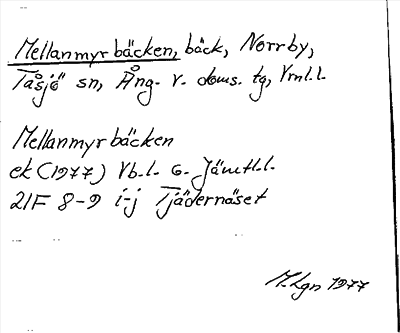 Mellanmyrbäcken, bäck, Norrby,
Tåsjö sn, Ång. v. doms. tg, Vrnl.l.
Mellanmyrbäcken
ek (1977) Vb.l. o. Jämtl.l.
21F 8-9 i-j Tjädernäset
M.Lgn 1977